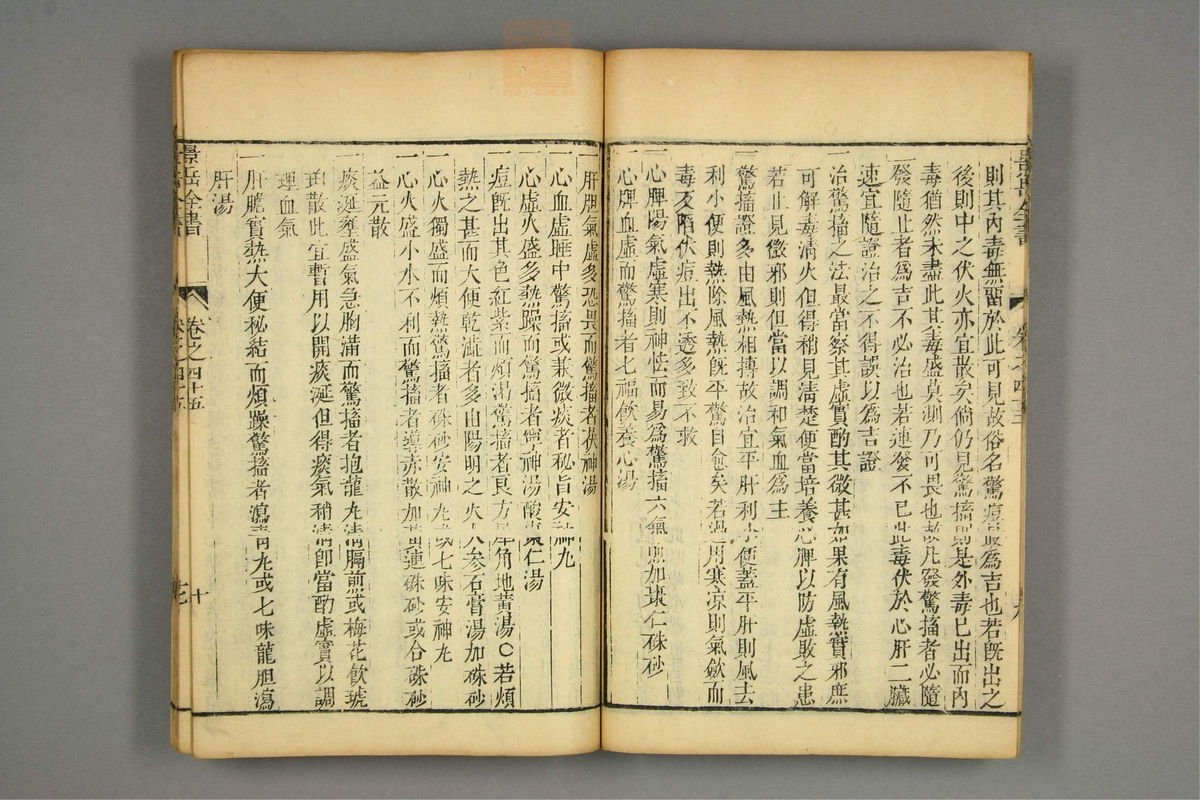 則其內毒無畱於此可見故俗名驚痘最爲吉也若旣出之
後則中之伏火亦宜散矣倘仍見驚搐則是外毒已出而內
毒猶然未盡此其毒盛莫測乃可畏也故凡發驚搐者必隨
發隨止者爲吉不必治也若連發不已此毒伏於心肝二臟
速宜隨證治之不得誤以爲吉證
一治驚搐之法最當察其虛實酌其微甚如果有風熱實邪庶
可解毒清火但得稍見清楚便當培養心脾以防虛敗之患
若止見微邪則但當以調和氣血爲主
一驚搐證多由風熱相搏故治宜平肝利小便蓋平肝則風去
利小便則熱除風熱旣平驚自愈矣若過用寒凉則氣斂而
毒反陷伏痘出不透多致不救
一心脾陽氣虛寒則神怯而易爲驚搐六氣煎加棗仁硃砂
一心脾血虛而驚搐者七福飲養心湯
一肝胆氣虛多恐畏而驚搐者茯神湯
一心血虛睡中驚搐或兼微痰者秘旨安神丸
一心虛火盛多熱躁而驚搐者寧神湯酸棗仁湯
一痘旣出其色紅紫而煩渴驚搐者良方犀角地黃湯○若煩
熱之甚而大便乾澁者多由陽明之火人參石膏湯加硃砂
一心火獨盛而煩熱驚搐者硃砂安神丸或七味安神丸
一心火盛小水不利而驚搐者導赤散加黃連硃砂或合硃砂
益元散
一痰涎壅盛氣急胸滿而驚搐者抱龍丸清膈煎或梅花飲琥
珀散此宜暫用以開痰涎但得痰氣稍清卽當酌虛實以調
理血氣
一肝膽實熱大便秘結而煩躁驚搐者瀉青丸或七味龍胆瀉
肝湯
景岳全書
卷之四十五
十